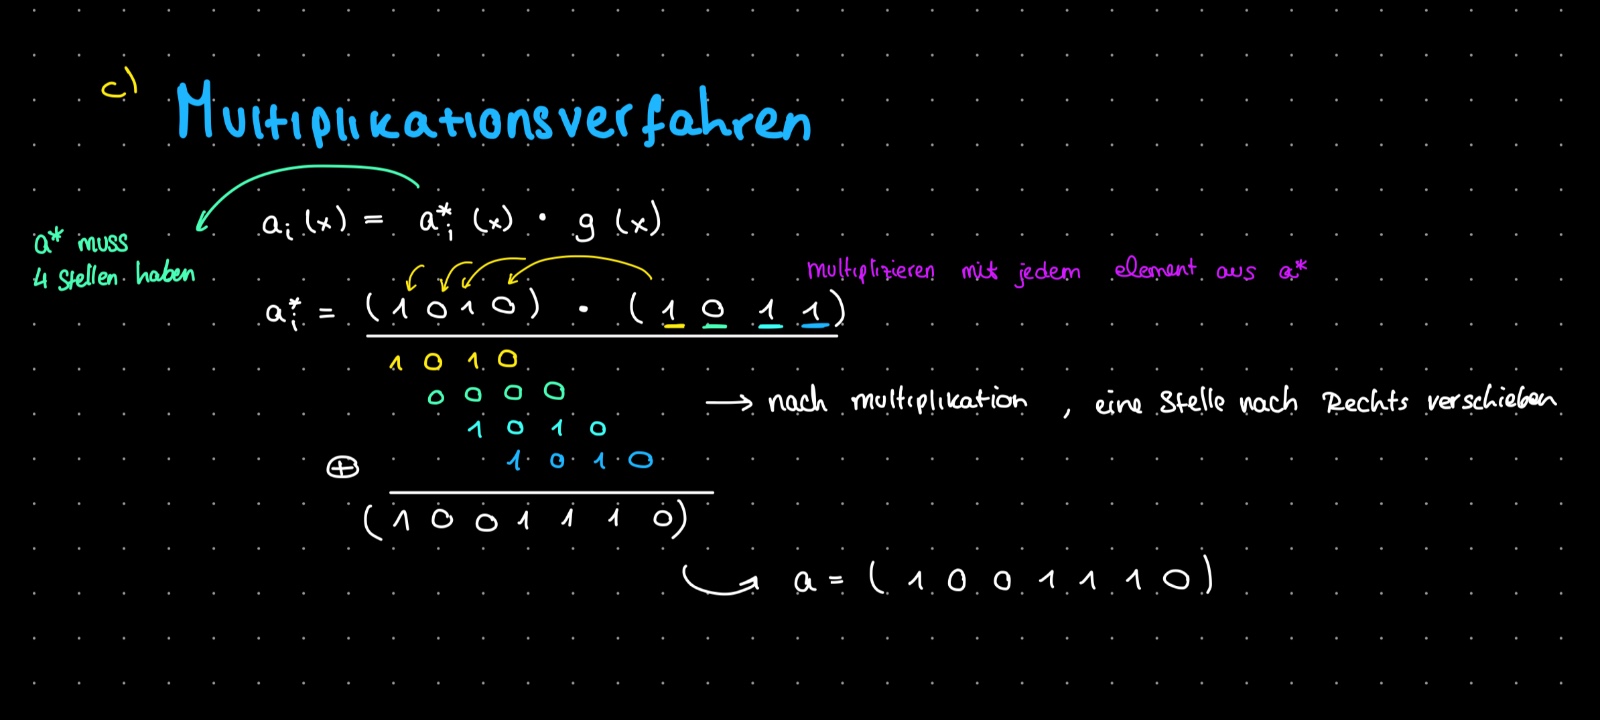 c) Multiplikationsverfahren
aᵢ(x) = aᵢ*(x) · g(x)
a* muss
4 Stellen haben
multiplizieren mit jedem element aus a*
aᵢ* = (1 0 1 0) · (1 0 1 1)
1 0 1 0
0 0 0 0
→ nach multiplikation, eine Stelle nach Rechts verschieben
1 0 1 0
⊕ 1 0 1 0
(1 0 0 1 1 1 0)
a = (1 0 0 1 1 1 0)